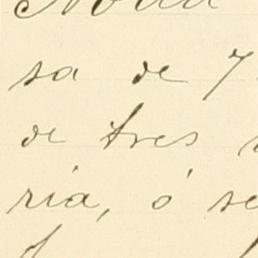 sa de 7
de tres
ria, ó se